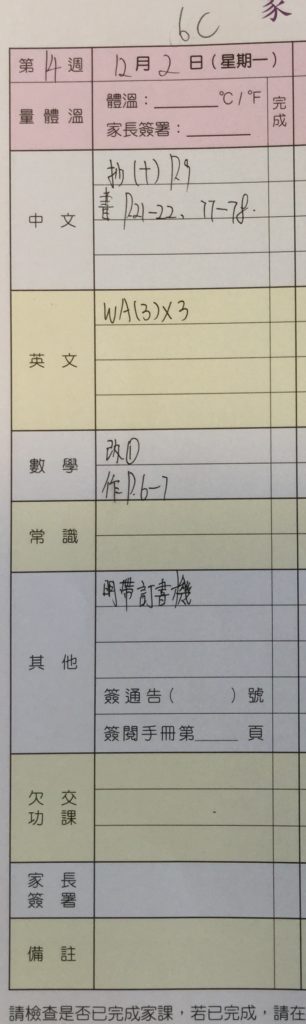 家
6C
第 14 週 12 月 2 日 (星期一)
量體溫 體溫：______ ℃/℉ 完成
家長簽署：______
中文 抄(十) P.9
書 P.21-22、77-78.
英文 WA(3)×3
數學 改①
作 P.6-7
常識
其他 明帶訂書機
簽通告( )號
簽閱手冊第____頁
欠交功課
家長簽署
備註
請檢查是否已完成家課，若已完成，請在